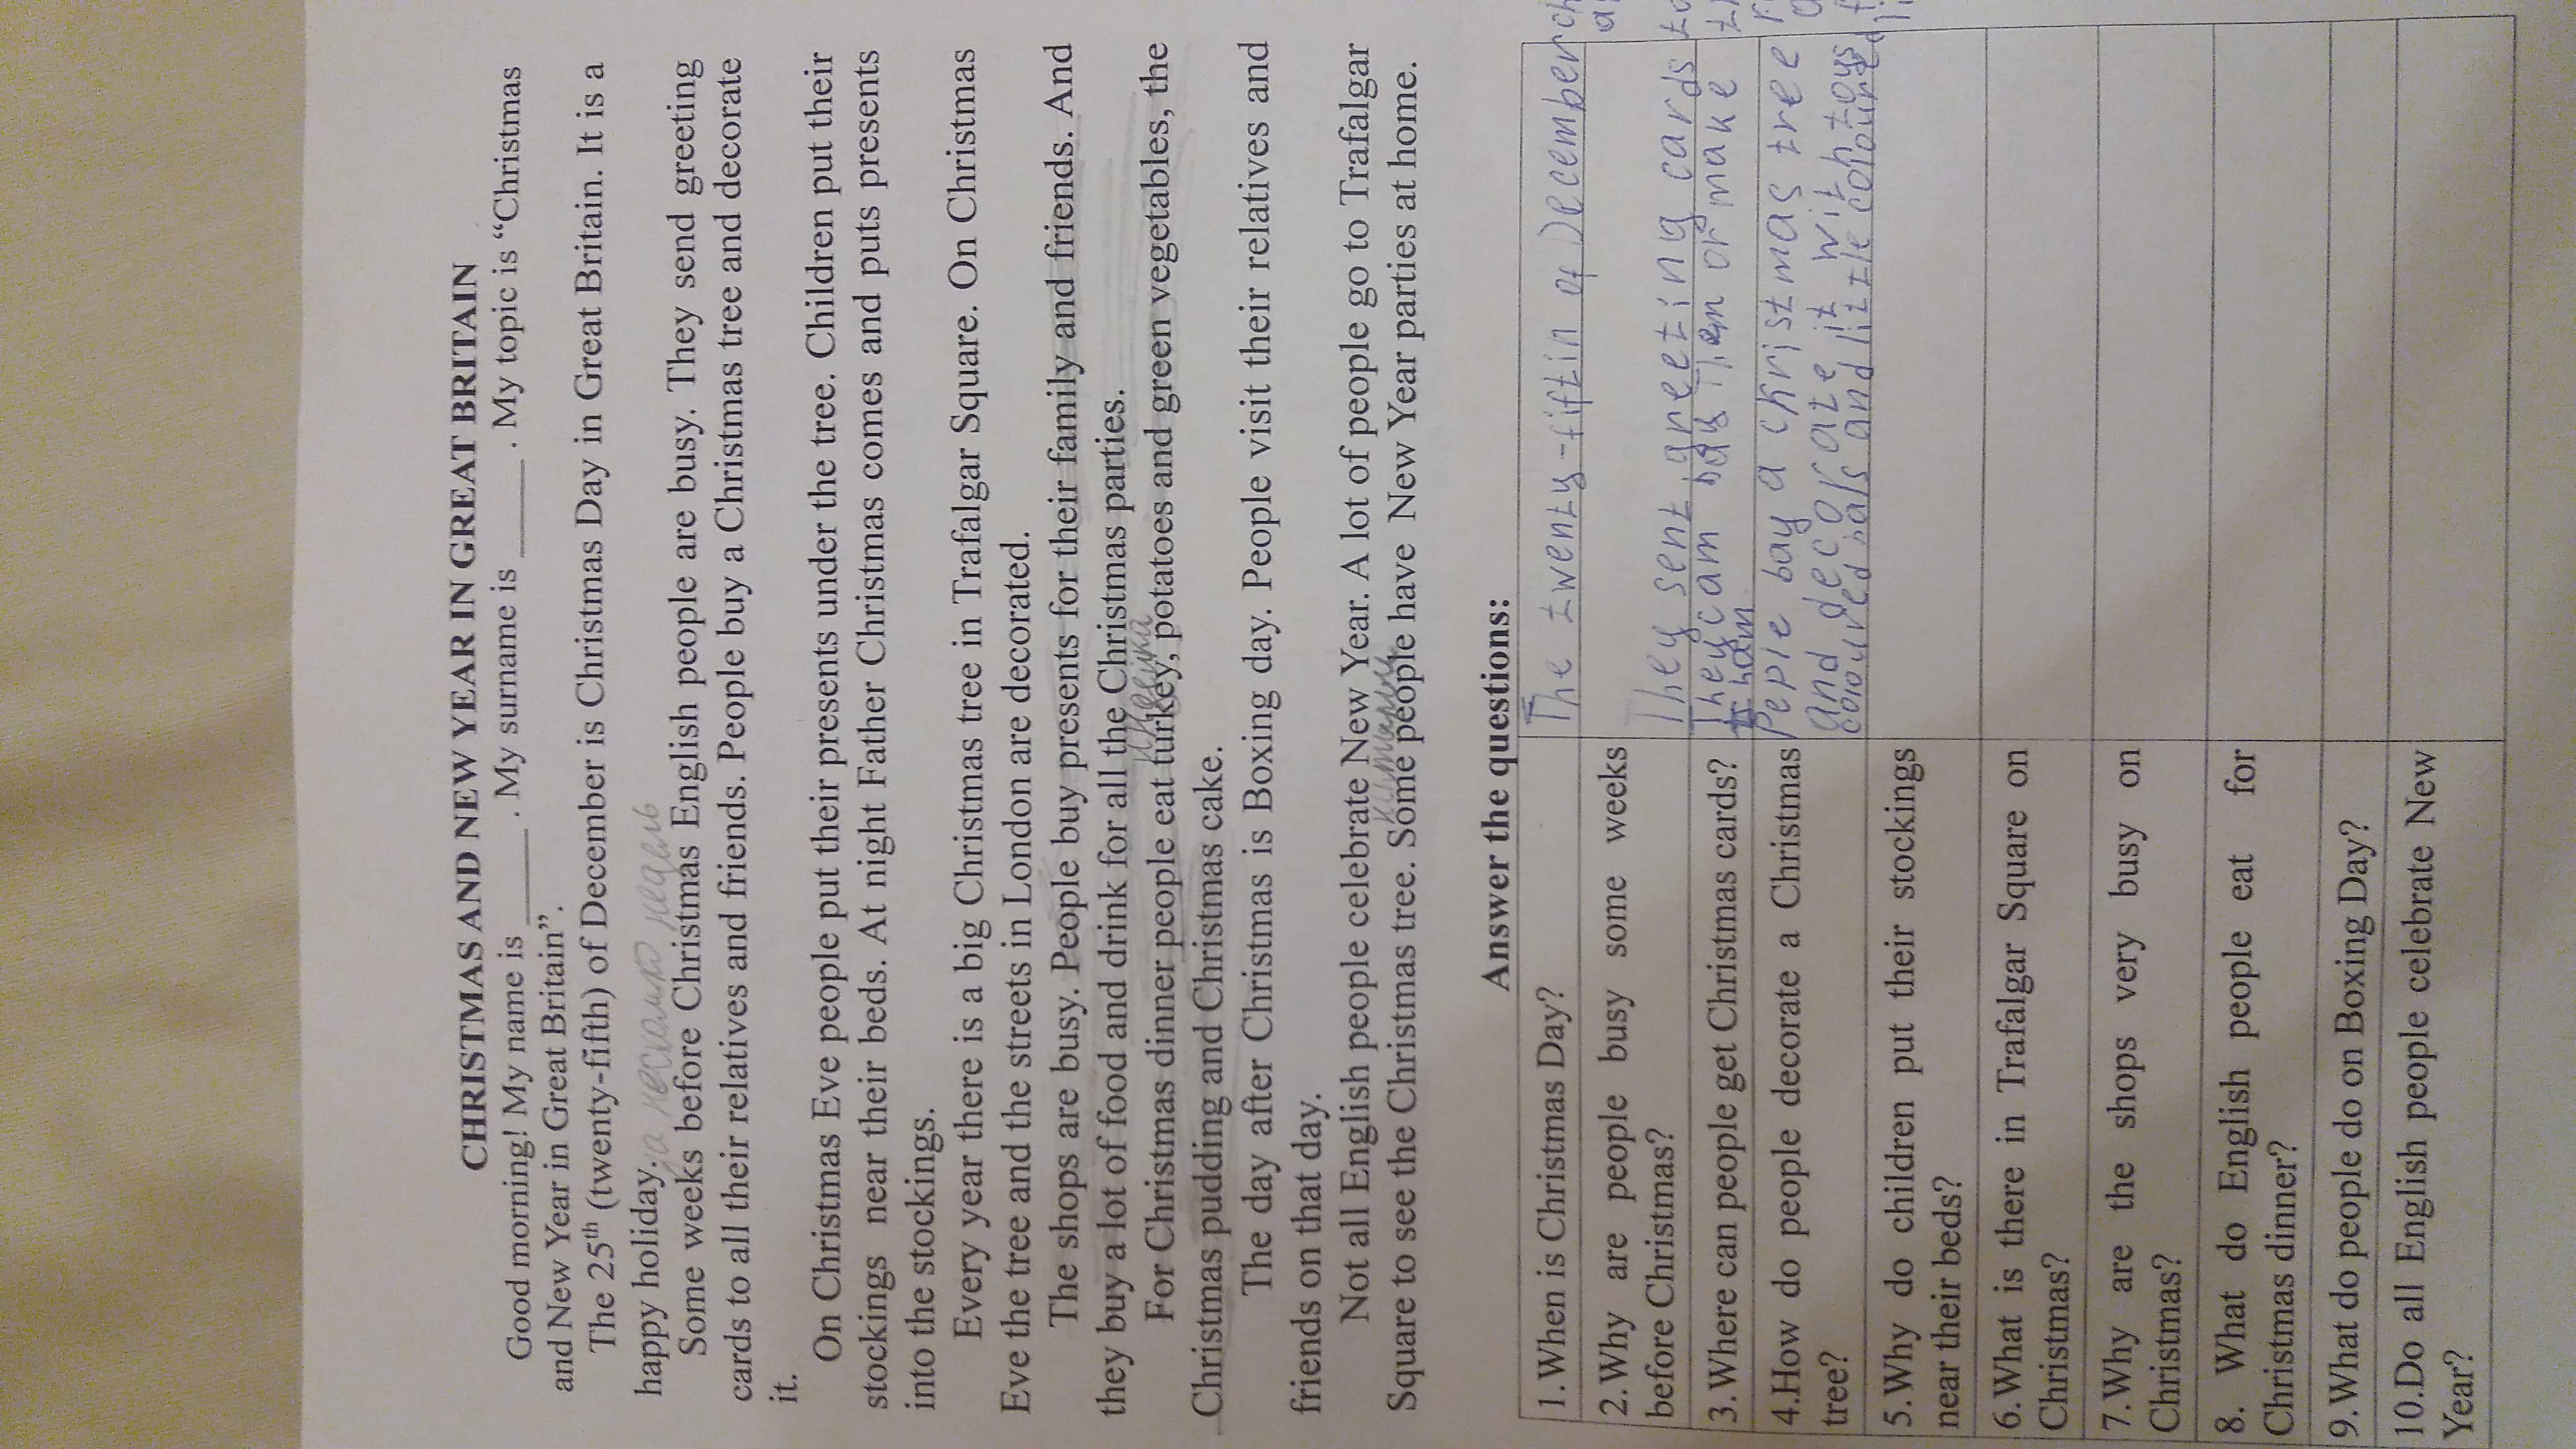 CHRISTMAS AND NEW YEAR IN GREAT BRITAIN
Good morning! My name is _____. My surname is _____. My topic is “Christmas
and New Year in Great Britain”.
The 25th (twenty-fifth) of December is Christmas Day in Great Britain. It is a
happy holiday.
за несколько недель
Some weeks before Christmas English people are busy. They send greeting
cards to all their relatives and friends. People buy a Christmas tree and decorate
it.
On Christmas Eve people put their presents under the tree. Children put their
stockings near their beds. At night Father Christmas comes and puts presents
into the stockings.
Every year there is a big Christmas tree in Trafalgar Square. On Christmas
Eve the tree and the streets in London are decorated.
The shops are busy. People buy presents for their family and friends. And
they buy a lot of food and drink for all the Christmas parties.
индейка
For Christmas dinner people eat turkey, potatoes and green vegetables, the
Christmas pudding and Christmas cake.
The day after Christmas is Boxing day. People visit their relatives and
friends on that day.
Not all English people celebrate New Year. A lot of people go to Trafalgar
Square to see the Christmas tree. Some people have New Year parties at home.
Answer the questions:
1.When is Christmas Day?
The twenty-fiftin of December
2.Why are people busy some weeks
before Christmas?
They sent greeting cards
3.Where can people get Christmas cards?
They cam bay Them or make
4.How do people decorate a Christmas
tree?
Pepie bay a christmas tree
and decorate it with toys
coloured bals and little coloured
5.Why do children put their stockings
near their beds?
6.What is there in Trafalgar Square on
Christmas?
7.Why are the shops very busy on
Christmas?
8. What do English people eat for
Christmas dinner?
9.What do people do on Boxing Day?
10.Do all English people celebrate New
Year?